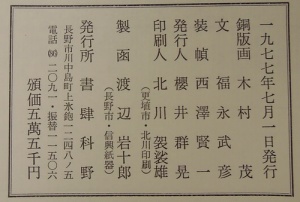 一九七七年七月一日発行
銅版画 木村 茂
文 福永武彦
装幀 西澤賢一
発行人 櫻井群晃
印刷人 北川袈裟雄
(更埴市・北川印刷)
製函 渡辺岩十郎
(長野市・信興紙器)
発行所 書肆科野
長野市川中島町上氷鉋一二四八ノ五
電話 二〇九一・振替一一五〇六
頒価五萬五千円